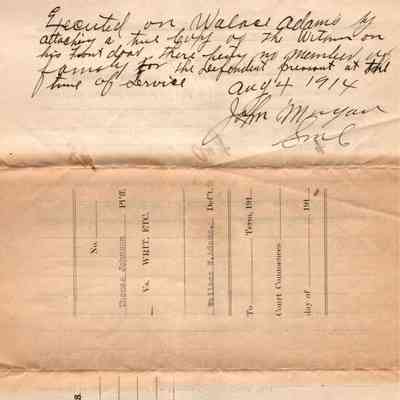 Executed on Walace Adams by
attaching a true Copy of the Within on
his front door, there being no member of
family for the defendent present at the
time of Service Aug 4 1914
John Morgan
No.
Thomas Johnson Pl'ff.
Vs. WRIT, ETC.
Wallace W. Adams, Def't.
To Term, 191
Court Commences
day of 191